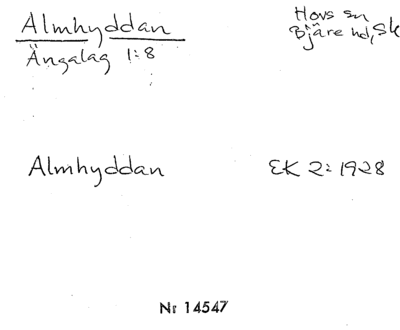 Almhyddan
Hovs sn
Ängalag 1:8
Bjäre hd, Sk
Almhyddan
EK 2:1928
Nr 14547